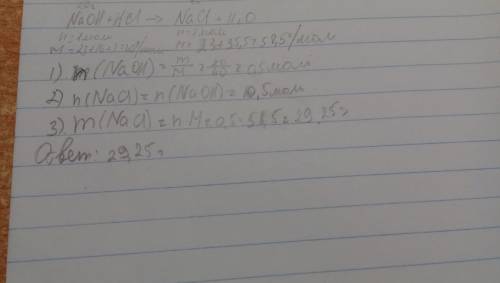 20г
NaOH + HCl → NaCl + H₂O
n=1моль n=1моль
M=23+35,5=58,5г/моль
1) n(NaOH) = m/M = 20/40 = 0,5 моль
2) n(NaCl) = n(NaOH) = 0,5 моль
3) m(NaCl) = n·M = 0,5·58,5 = 29,25г
Ответ: 29,25г